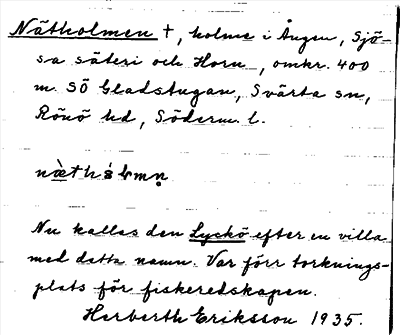 Nätholmen †, holme i Ången, Sjö-
sa säteri och Horn, omkr. 400
m. SÖ Gladstugan, Svärta sn,
Rönö hd, Söderm. l.
Nu kallas den Lyckö efter en villa
med detta namn. Var förr torknings-
plats för fiskeredskapen.
Herberth Eriksson 1935.